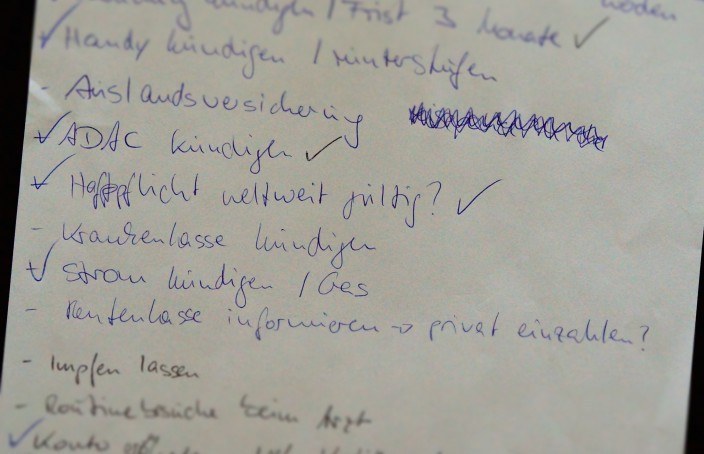 kündigen / Frist 3 Monate ✓
✓ Handy kündigen / runterstufen
- Auslandsversicherung
✓ ADAC kündigen ✓
✓ Haftpflicht weltweit gültig? ✓
- Krankenkasse kündigen
✓ Strom kündigen / Gas
- Rentenkasse informieren → privat einzahlen?
- Impfen lassen
- Routinebesuche beim Arzt
✓ Konto